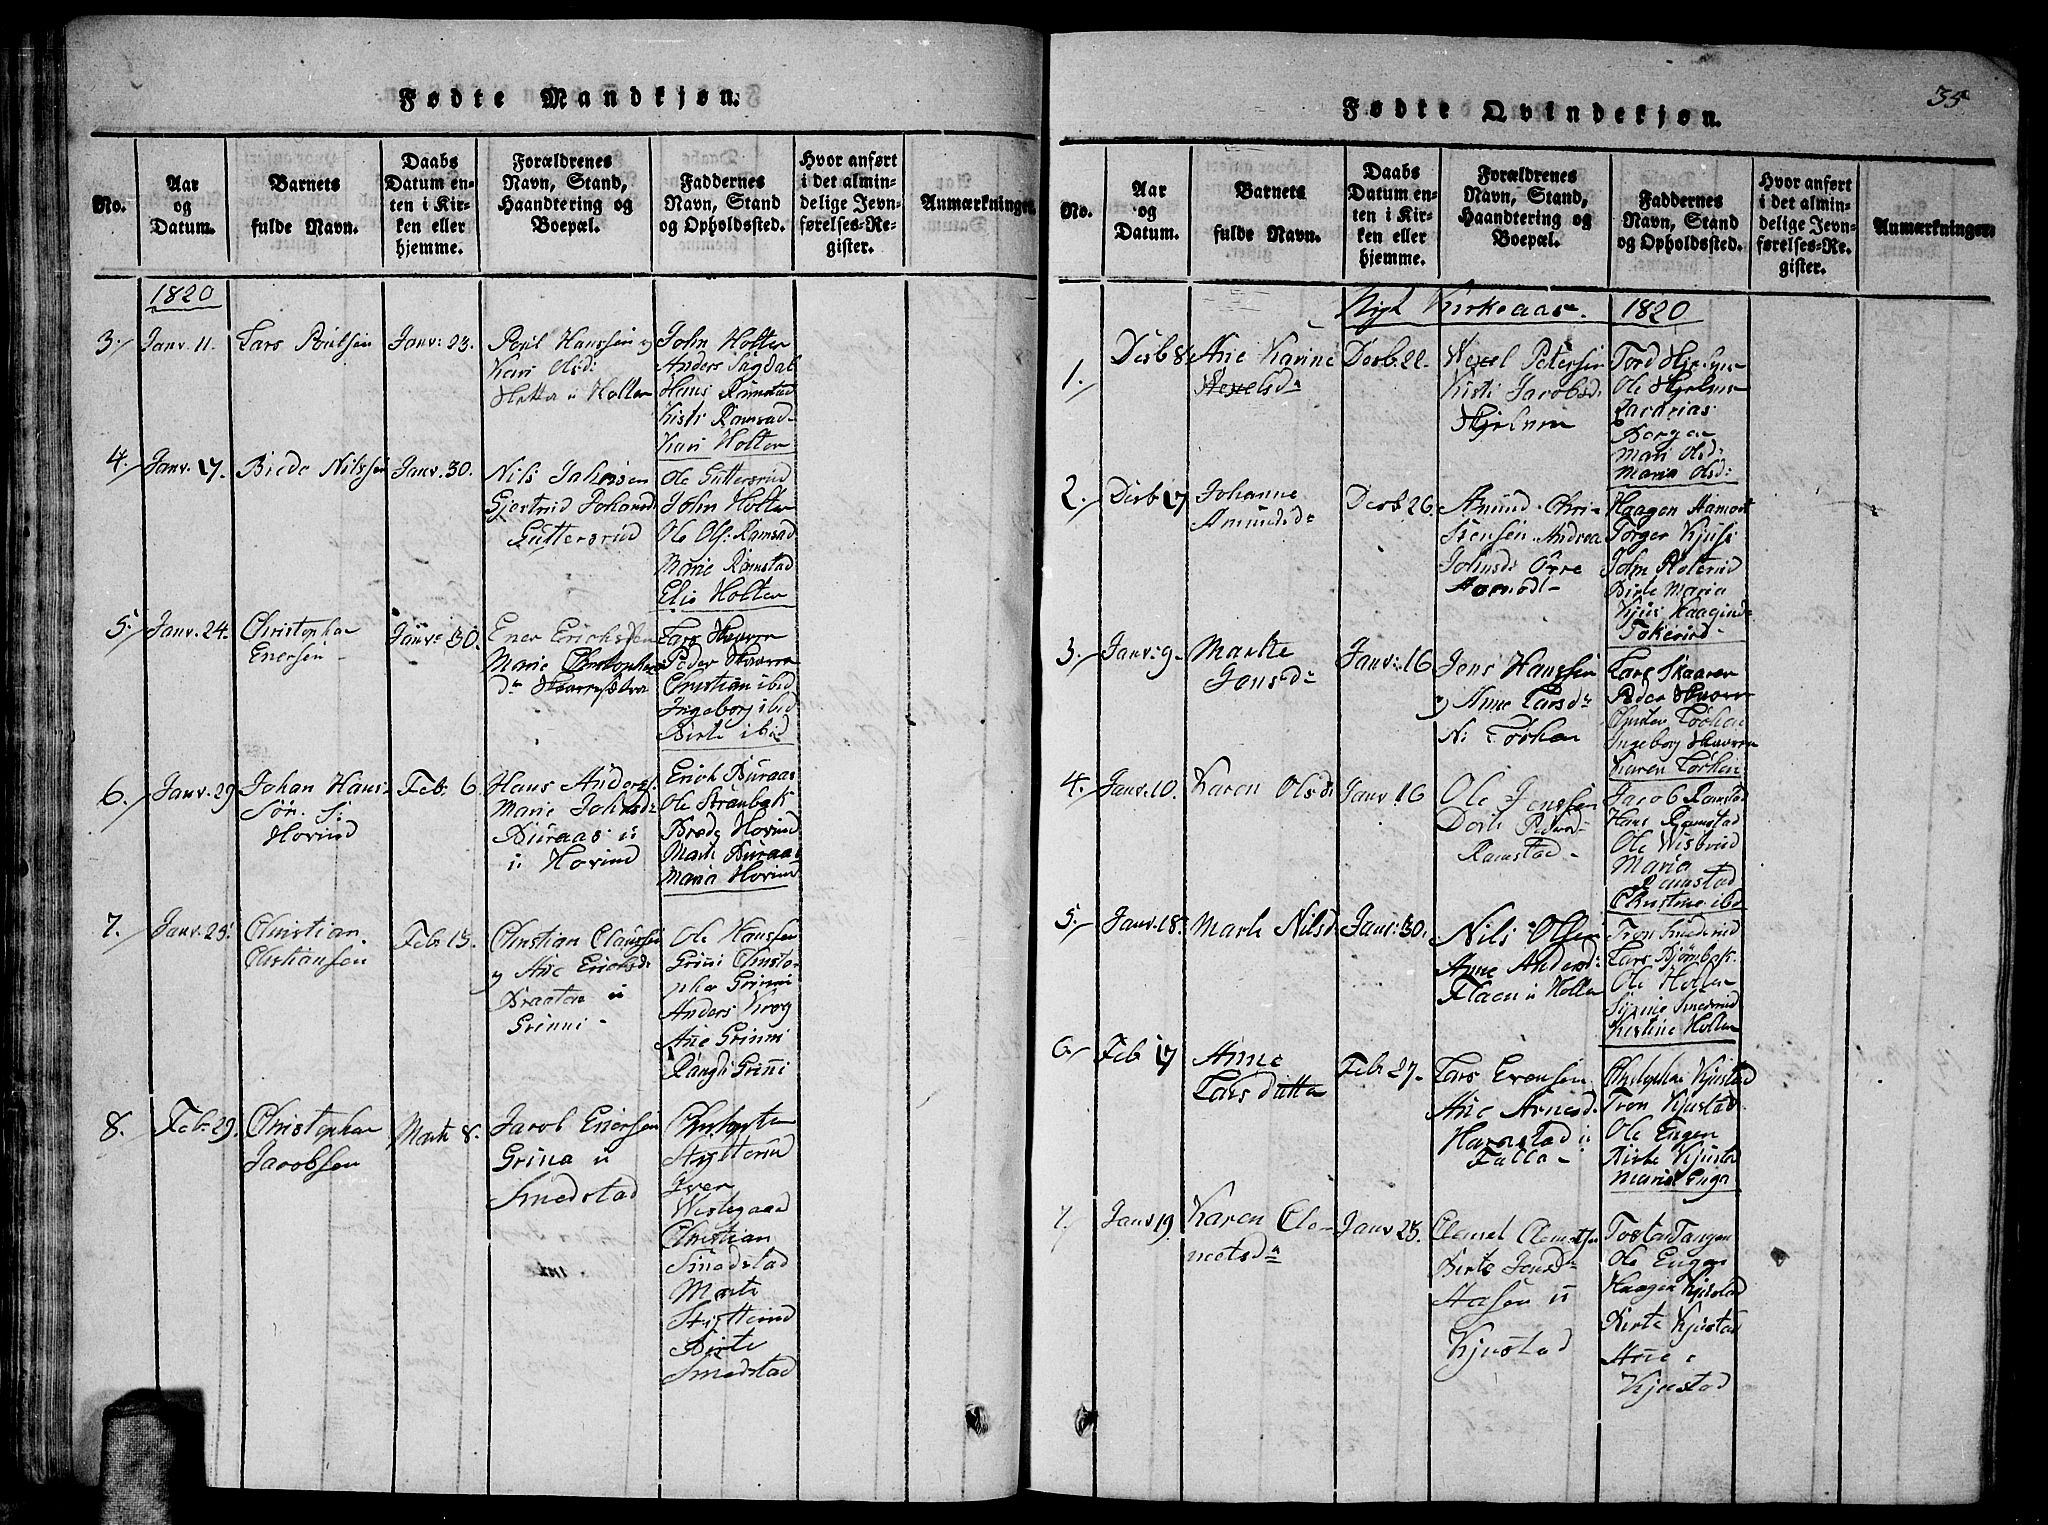 Fødte Mandkjøn.
No.
Aar
og
Datum.
Barnets
fulde Navn.
Daabs
Datum en-
ten i Kir-
ken eller
hjemme.
Forældrenes
Navn, Stand,
Haandtering og
Boepæl.
Faddernes
Navn, Stand
og Opholdssted.
Hvor anført
i det almin-
delige Jevn-
førelses-Re-
gister.
Anmærkninger.
1820
3. Janv. 11. Lars Poulsen Janv: 23.
Poul Hanssen og
Kari Olsd:
Hetta u Holter
John Holter
Anders Sagdal
Hans Ramstad
Kisti Ramsad
Kari Holter
4. Janv. 17. Brede Nilssen Janv. 30.
Nils Johnsen
Gjertrud Johansd
Guttersrud
Ole Guttersrud
John Holter
Ole Ols: Ramsad
Marie Ramstad
Elie Holter
5. Janv. 24. Christopher
Enersen
Janv: 30.
Ener Erichsen
Marie Christophers
dr Skarresætra
Lars Skaarer
Peder Skaarer
Christian ibid
Ingeborg ibid
Birte ibid
6. Janv. 29 Johan Hans-
Søn. S:
Hovind
Feb: 6.
Hans Anders:
Marie Johnsd:
Buraas u
u Hovind
Erich Buraas
Ole Stranbæk
Brede Hovind
Marte Buraas
Maria Hovind
7. Janv. 25. Christian
Christiansen
Feb 13.
Christian Claussen
og Ane Ericksd:
Braaten u
Grinni
Ole Hanssen
Grini Christo-
pher Grinni
Anders Krog
Ane Grinni
Rangli Grini
8. Feb. 29. Christopher
Jacobsen
Marts 8.
Jacob Eriersen
Grina u
Smedstad
Christopher
Stytterud
Iver
Westgaard
Christian
Smedstad
Marte
Stytterud
Birte
Smedstad
35
Fødte Qvindekjøn.
No.
Aar
og
Datum.
Barnets
fulde Navn.
Daabs
Datum en-
ten i Kir-
ken eller
hjemme.
Forældrenes
Navn, Stand,
Haandtering og
Boepæl.
Faddernes
Navn, Stand
og Opholdssted.
Hvor anført
i det almin-
delige Jevn-
førelses-Re-
gister.
Anmærkninger.
Nyt Kirkeaar. 1820
1. Desb 8. Ane Karine
Wexelsdr
Desb. 22.
Wexel Petersen
Kisti Jacobsd:
Hjelmen
Tord Hjelmen
Ole Hjelmen
Zacharias
Borgen
Mari Olsd:
Maria Olsd:
2. Desb 17 Johanne
Amundsdr
Desb 26.
Amund Chri-
stensen Andrea
Johnsd: Øvre
Hamod
Haagen Hamort
Torger Kjus
John Roterud
Birte Maria
Kjus Haagensdr
Tokerud
3. Janv: 9. Marthe
Jensdr
Janv: 16
Jens Hanssen
og Anne Larsdr
N: Løshen
Lars Skaarer
Peder Skaarer
Løshen
Ingeborg Skaarer
Karen Løshen
4. Janv. 10. Karen Olsdr Janv 16
Ole Jenssen
Dorte Pedersd:
Ramstad
Jacob Ramstad
Hans Ramstad
Ole Wisbrud
Maria
Ramstad
Christine ibid
5. Janv. 18. Marte Nilsd. Janv: 30.
Nils Olsen
Anne Andersd:
Flaen u Holter
Tron Smederud
Lars Bjørnbæk
Ole Holter
Synne Smederud
Kistine Holter
6. Feb 17 Anne
Larsdatter
Feb 27.
Lars Evensen
Ane Arnesd:
Harestad u
Falla
Christopher Kjustad
Tron Kjustad
Ole Engen
Birte Kjustad
Marie Enga
7. Janv 19. Karen Cle-
metsdr
Janv 23.
Clemet Clemetsen
Birte Jensdr
Aasen u
Kjustad
Tostar Tangen
Ole Engen
Haagen Kjustad
Birte Kjustad
Ane
Kjustad